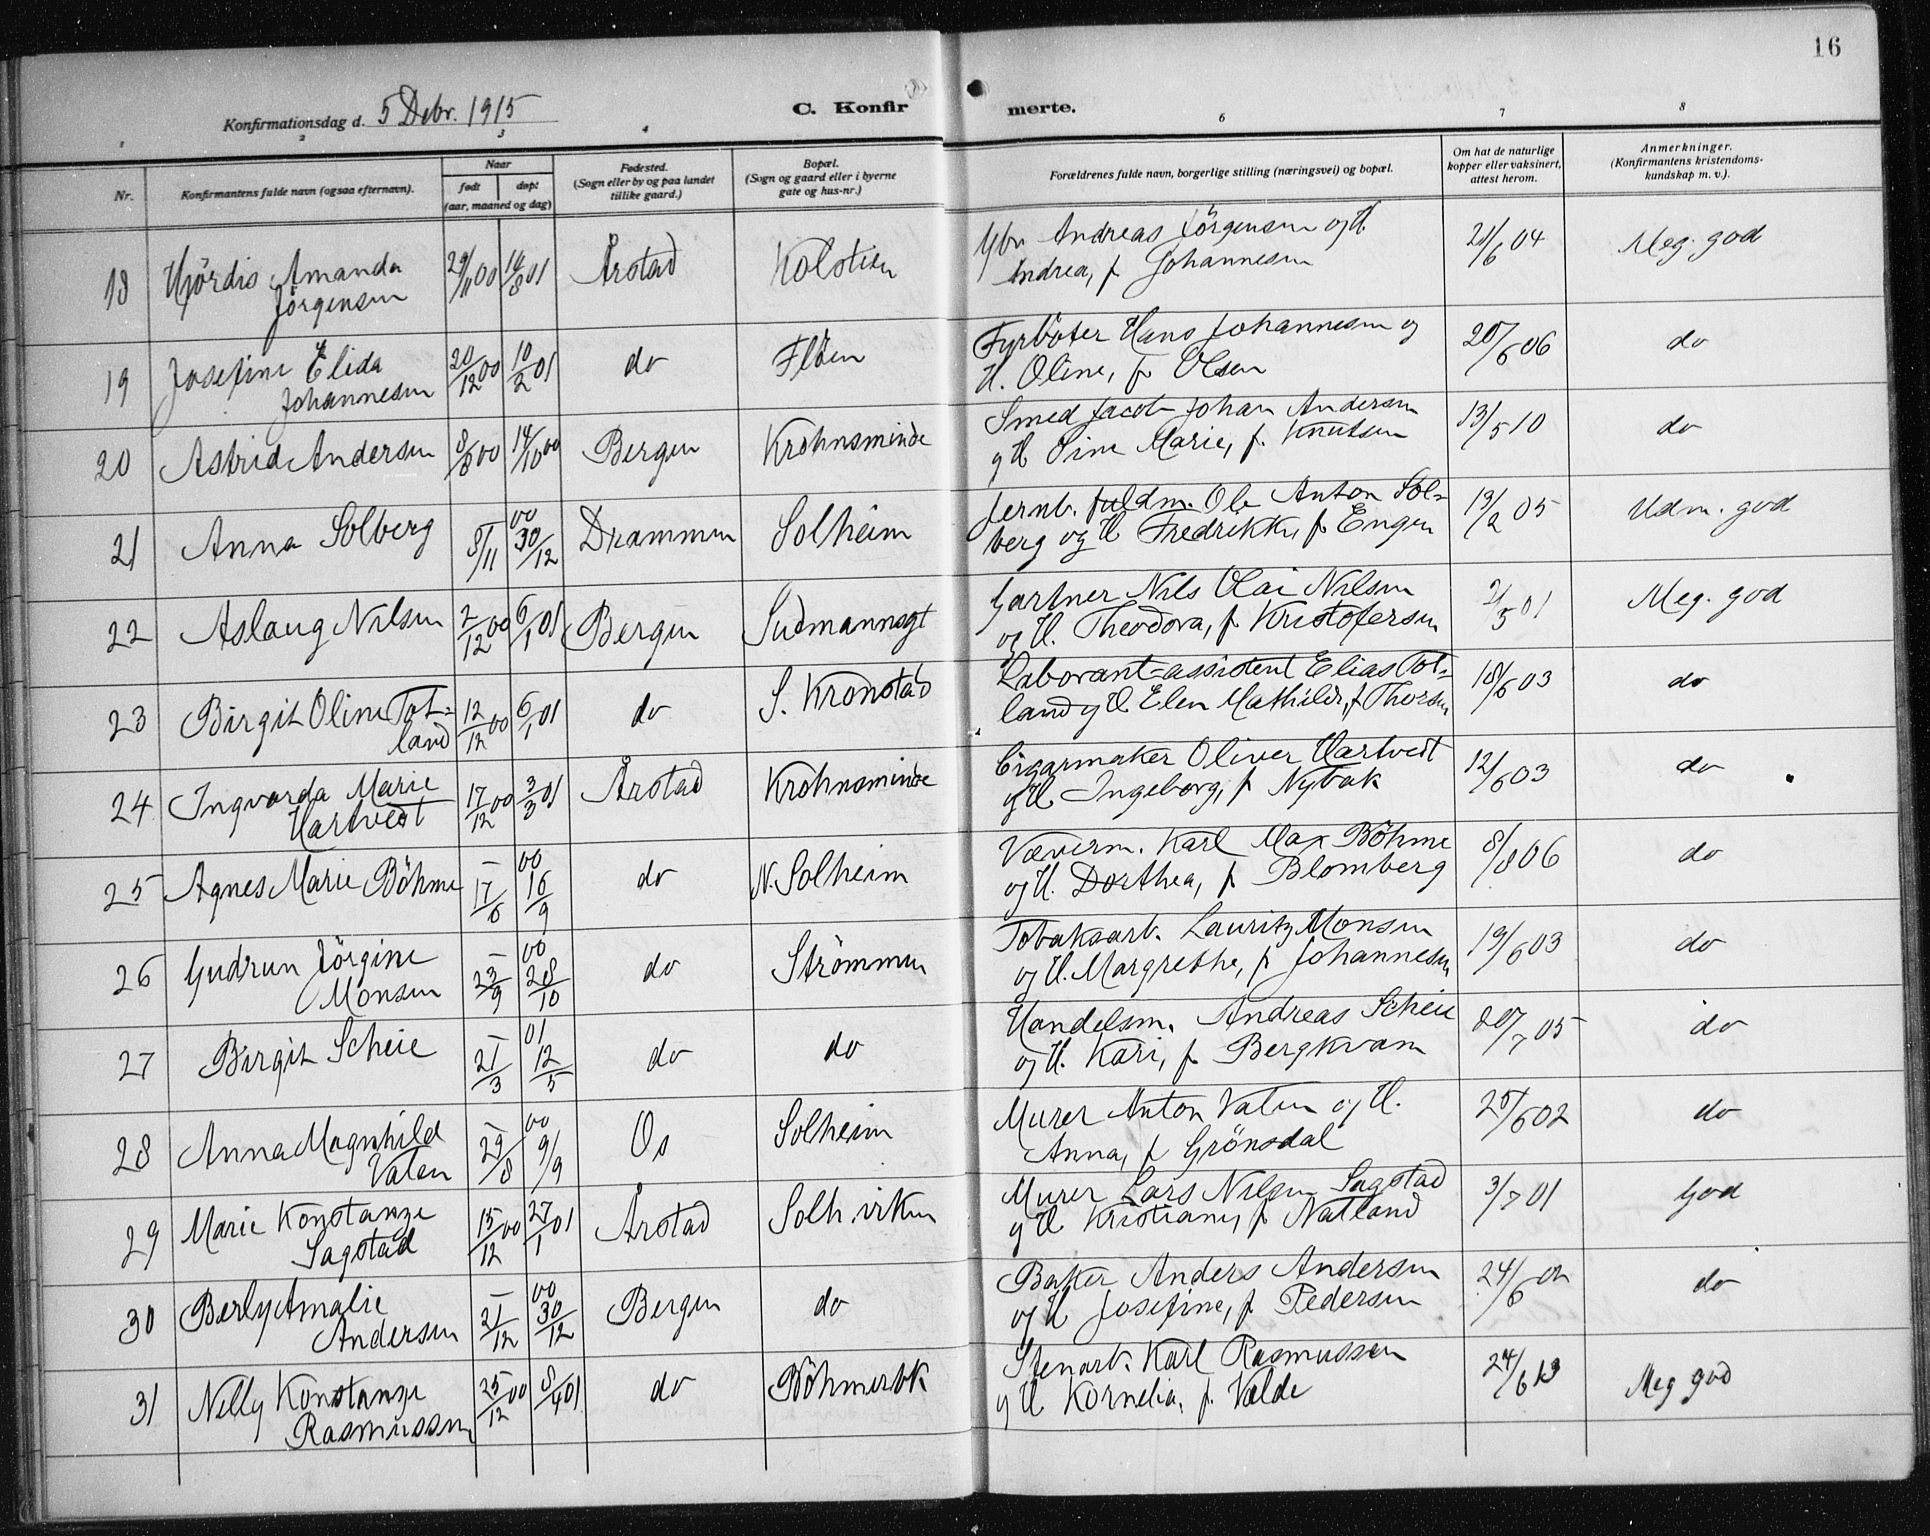 16
Konfirmationsdag d. 5 Debr. 1915
C. Konfirmerte.
1 2 3 4 6 7 8
Nr.
Konfirmantens fulde navn (ogsaa efternavn).
Naar
født døpt
(aar, maaned og dag)
Fødested.
(Sogn eller by og paa landet
tillike gaard.)
Bopæl.
(Sogn og gaard eller i byerne
gate og hus-nr.)
Forældrenes fulde navn, borgerlige stilling (næringsvei) og bopæl.
Om hat de naturlige
kopper eller vaksinert,
attest herom.
Anmerkninger.
(Konfirmantens kristendoms-
kundskap m. v.).
18 Hjördis Amanda
Jörgensen
29/11 00 16/8 01 Årstad Kolstien
Andreas Jörgensen og H.
Andrea, f Johannesen
21/6 04 Meg. god
19 Josefine Elida
Johannesen
20/12 00 10/2 01 do Flöen
Fyrböter Hans Johannesen og
H. Oline, f Olsen
20/6 06 do
20 Astrid Andersen
8/8 00 14/10 00 Bergen Krohnsminde
Smed Jacob Johan Andersen
og H Oine Marie, f. Knutsen
13/5 10 do
21 Anna Solberg
8/11 00 30/12 Drammen Solheim
Jernb. fuldm. Ole Anton Sol-
berg og H Fredrikke, f Engen
19/2 05 Udm. god
22 Aslaug Nilsen
2/12 00 6/1 01 Bergen Sudmannsgt
Gartner Nils Olai Nilsen
og H. Theodora, f Kristofersen
2/5 01 Meg. god
23 Birgit Oline Tot-
land
12/12 00 6/1 01 do S. Kronstad
Laborant-assistent Elias Tot-
land og H Elen Mathilde, f Thorsen
18/6 03 do
24 Ingvarda Marie
Hartvedt
17/12 00 3/3 01 Årstad Krohnsminde
Cigarmaker Oliver Hartvedt
og H Ingeborg, f Nybak
12/6 03 do
25 Agnes Marie Böhme
— 17/6 00 16/9 do N. Solheim
Væverm. Karl Max Böhme
og H. Dorthea, f Blomberg
8/8 06 do
26 Gudrun Jörgine
Monsen
— 23/9 00 28/10 do Strömmen
Tobaksarb. Lauritz Monsen
og H. Margrethe, f Johannesen
19/6 03 do
27 Birgit Scheie
— 21/3 01 12/5 do do
Handelsm. Andreas Scheie
og H. Kari, f Bergkvam
20/7 05 do
28 Anna Magnhild
Vaten
— 29/8 00 9/9 Os Solheim
Murer Anton Vaten og H.
Anna, f Grönsdal
25/6 02 do
29 Marie Konstanze
Sagstad
15/12 00 27/1 01 Årstad Solh. viken
Murer Lars Nilsen Sagstad
og H Kristiane, f Natland
3/7 01 God
30 Berly Amalie
Andersen
— 21/12 00 30/12 Bergen do
Baker Anders Andersen
og H Josefine, f Pedersen
24/6 02 do
31 Nelly Konstanze
Rasmussen
25/12 00 8/4 01 do Böhmerbk
Stenarb. Karl Rasmussen
og H Kornelia, f. Valde
24/6 13 Meg god